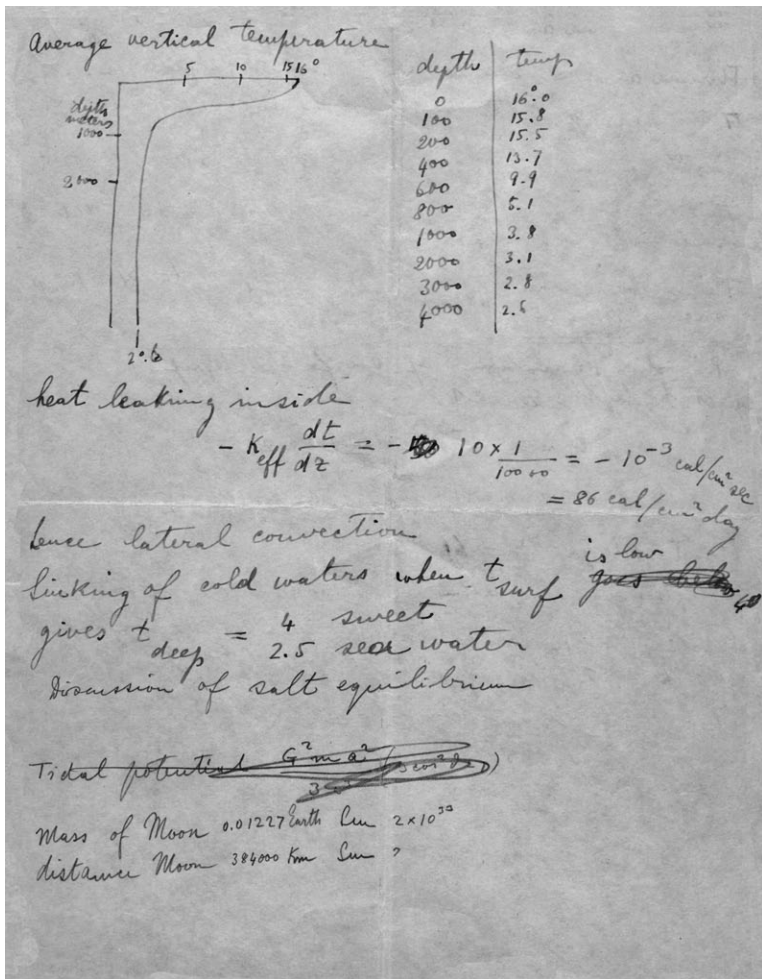 Average vertical temperature
5 10 15 16°
depth
meters
1000
2000
2°.6
depth temp
0 16°.0
100 15.8
200 15.5
400 13.7
600 9.9
800 5.1
1000 3.8
2000 3.1
3000 2.8
4000 2.6
heat leaking inside
- K_eff dt/dz = - 10 × 1/10000 = - 10^-3 cal/cm² sec
= 86 cal/cm² day
hence lateral convection
is low
Sinking of cold waters when t_surf goes below 4°
gives t_deep = 4 sweet
2.5 sea water
Discussion of salt equilibrium
Tidal potential G²ma²
Mass of Moon 0.01227 Earth Sun 2×10^33
distance Moon 384000 Km Sun ?